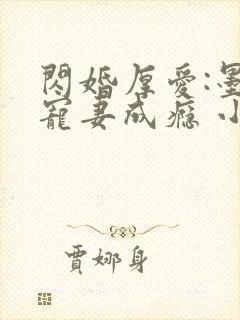 閃婚厚愛:墨
寵妻成癮 小
賈娜身